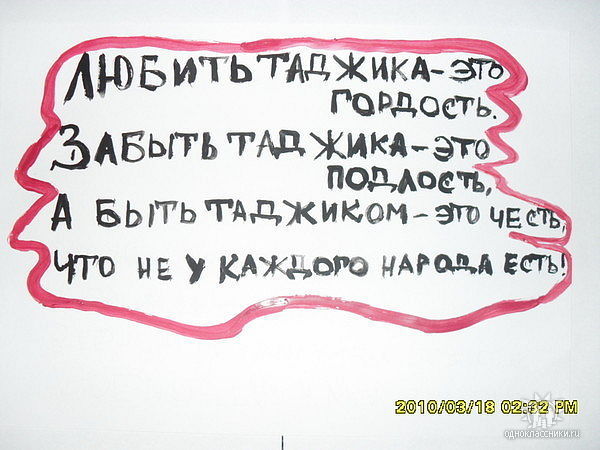 ЛЮБИТЬ ТАДЖИКА - ЭТО
ГОРДОСТЬ.
ЗАБЫТЬ ТАДЖИКА - ЭТО
ПОДЛОСТЬ,
А БЫТЬ ТАДЖИКОМ - ЭТО ЧЕСТЬ,
ЧТО НЕ У КАЖДОГО НАРОДА ЕСТЬ!
2010/03/18 02:32 PM
одноклассники.ru